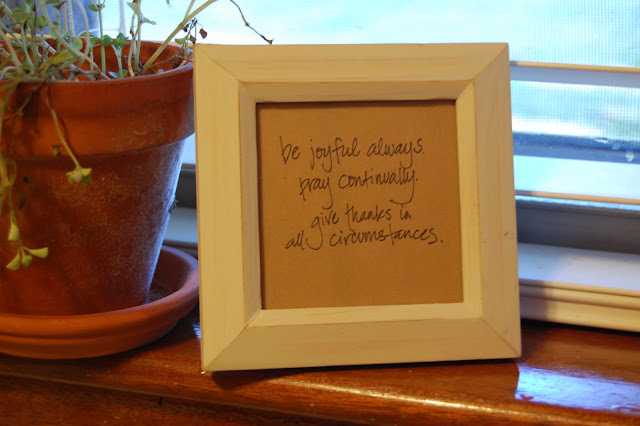 be joyful always.
pray continually.
give thanks in
all circumstances.